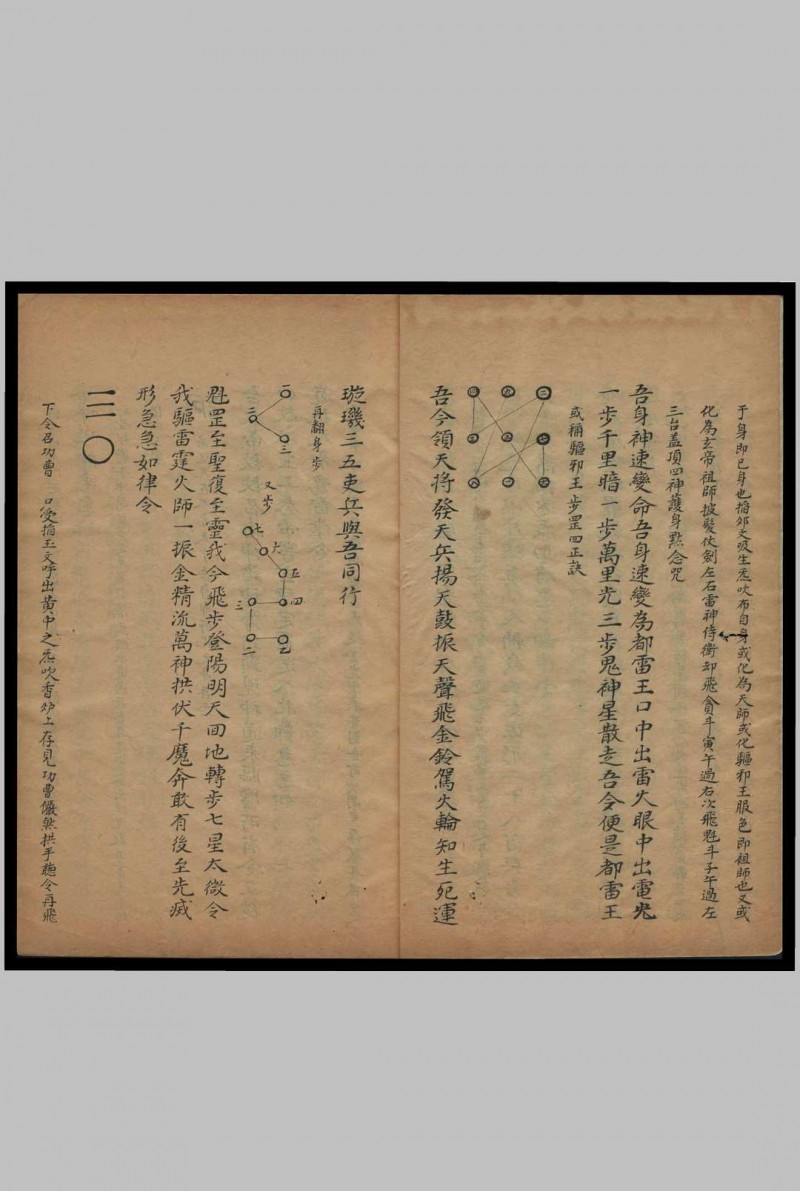 于身即已身也掐卯文吸生炁吹布自身或化為天師或化驅邪王服色即祖師也又或
化為玄帝祖師披髮仗劍左右雷神侍衛卻飛貪斗寅午過右次飛魁斗子午過左
三台蓋頂四神護身默念咒
吾身神速變命吾身速變為都雷王口中出雷火眼中出電光
一步千里暗一步萬里光三步鬼神星散走吾今便是都雷王
或稱驅邪王步罡四正訣
吾今領天將發天兵揚天鼓振天聲飛金鈴駕火輪知生死運
璇璣三五吏兵與吾同行
再翻身步
一
二
三
又步
七
六
五
四
三
二
乙
魁罡至聖復至靈我今飛步登陽明天回地轉步七星太微令
我驅雷霆火師一振金精流萬神拱伏千魔奔敢有後至先滅
形急急如律令
下令召功曹
口受掐玉文呼出黃中之炁吹香炉上存見功曹儼然拱手聽令再飛